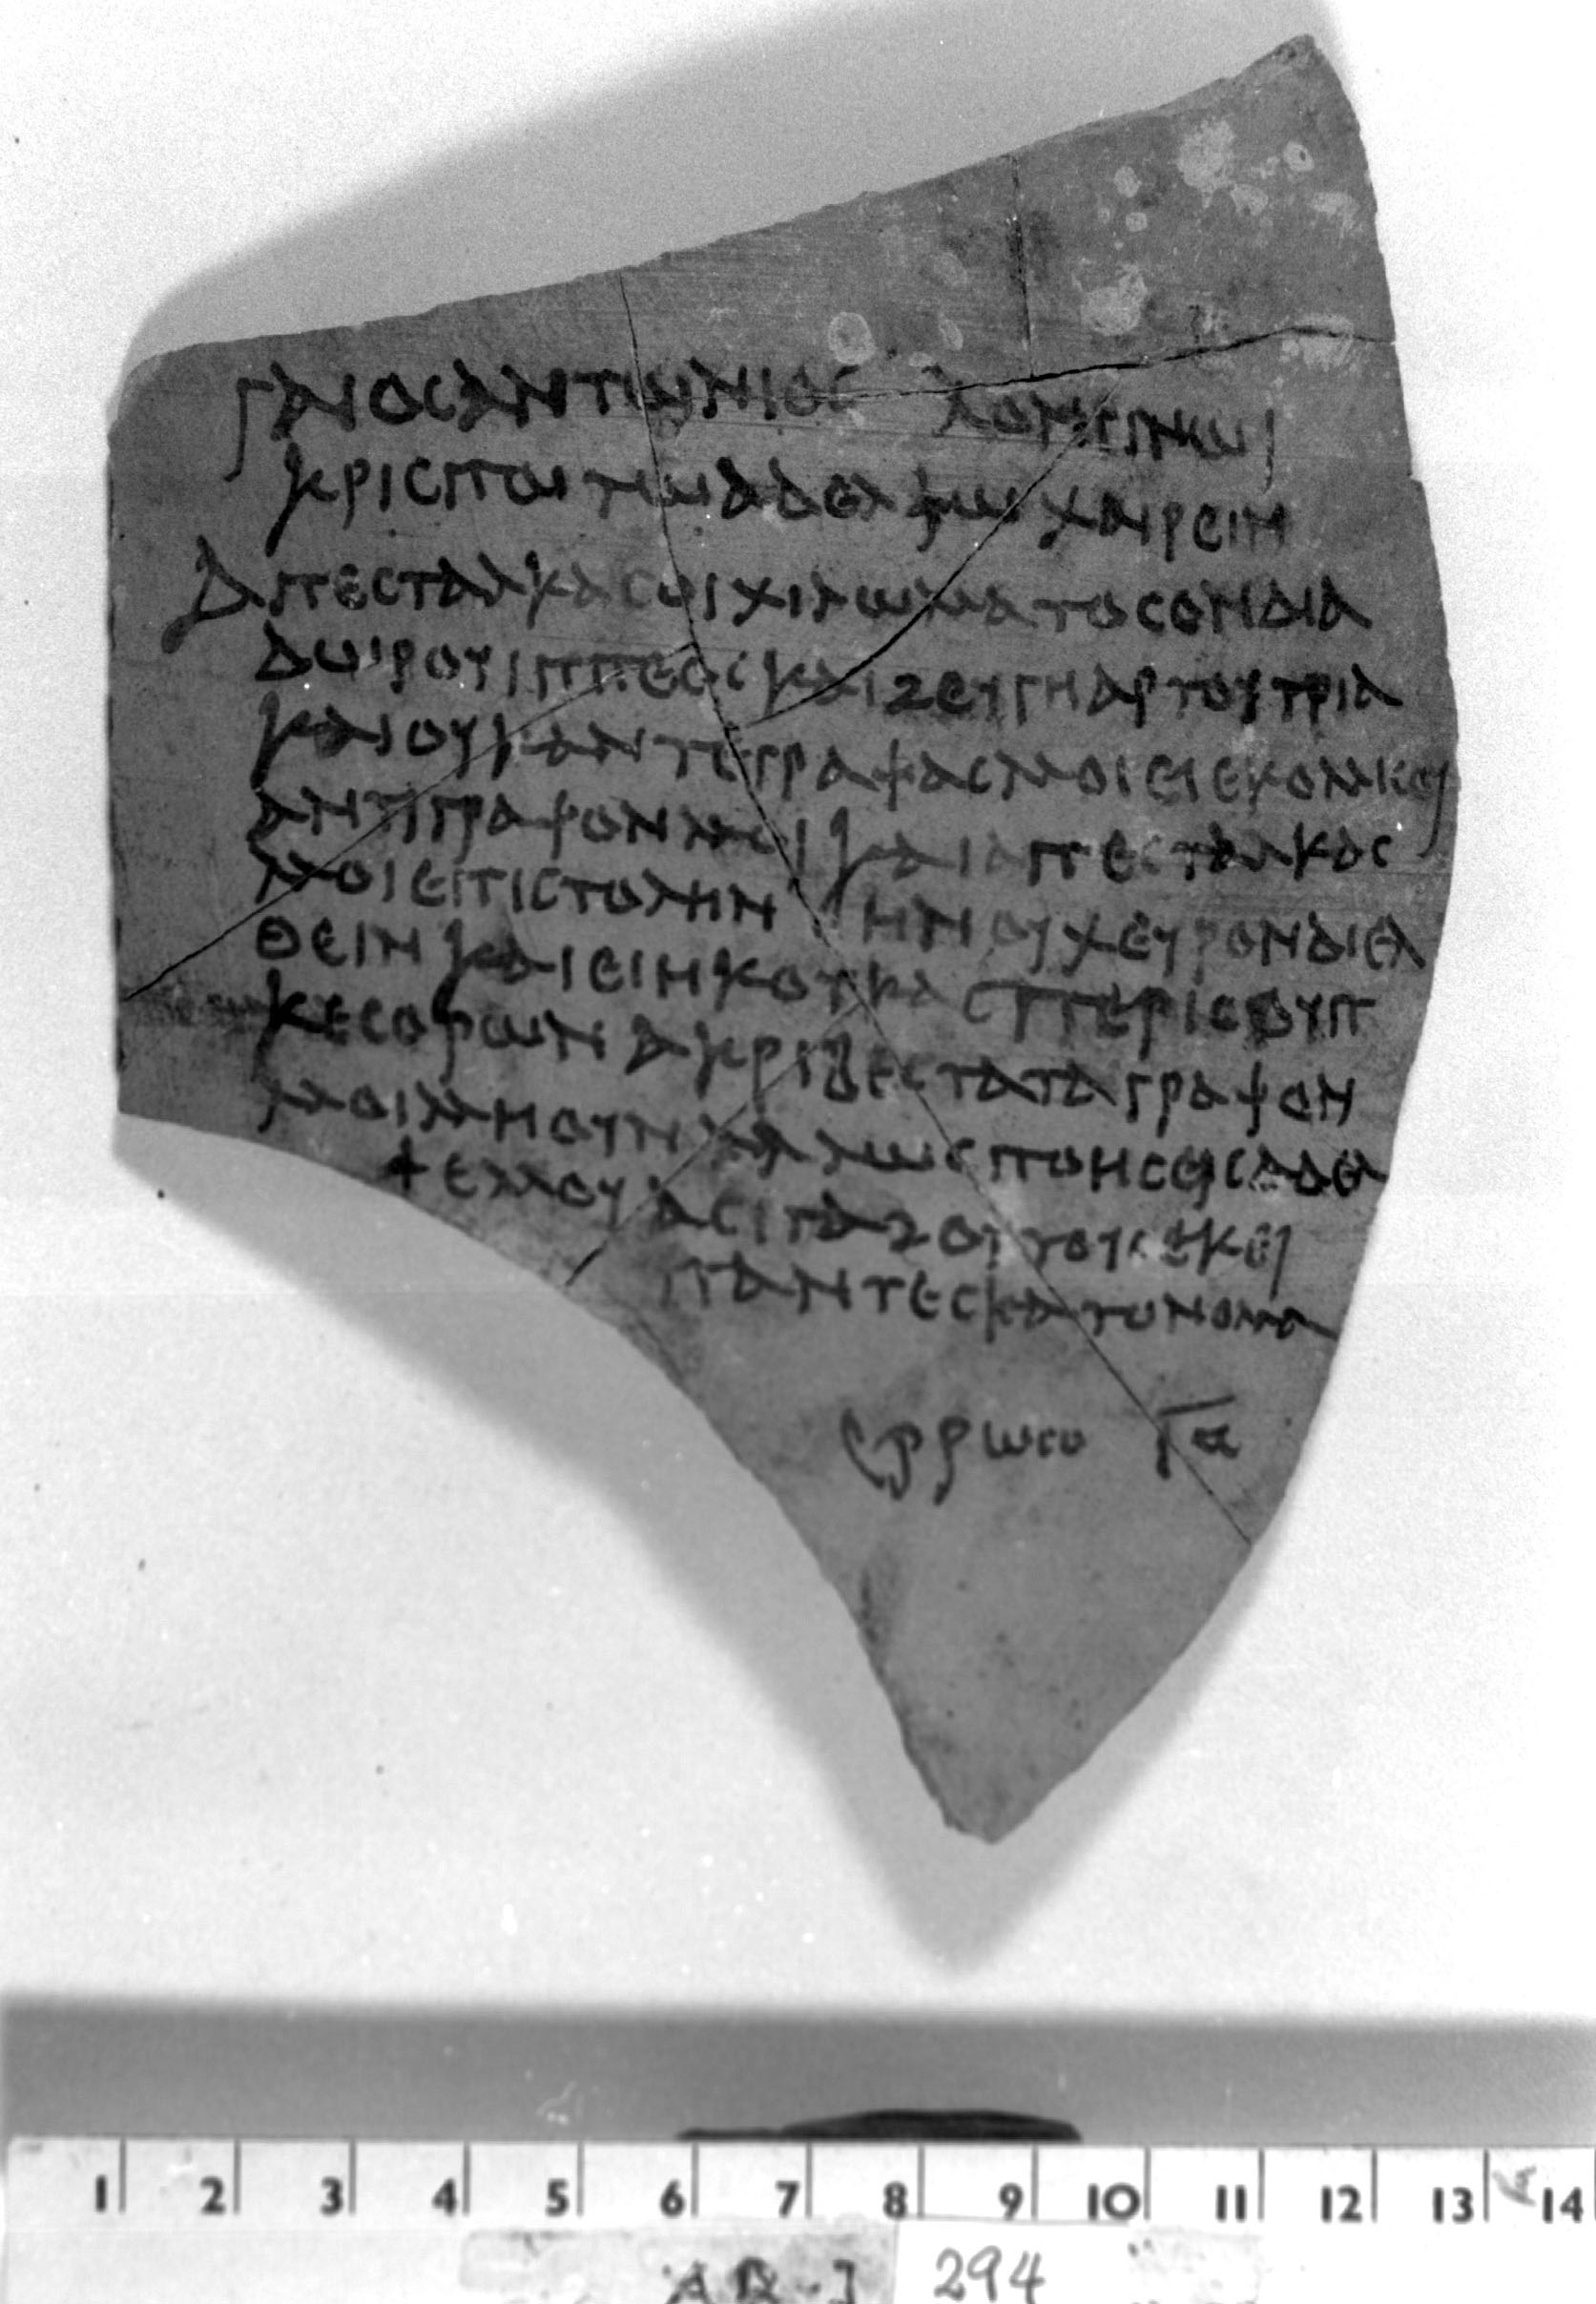 γαιος αντωνιος λονγινωι
κρισπωι τωι αδελφωι χαιρειν
απεσταλκα σοι χιλωματος ον δια
δωρου ιππεος και ζευγη αρτου τρια
και ουκ αντεγραψας μοι ει εκομισου
αντιγραφον μοι και απεσταλκας
μοι επιστολην ην ουχ ευρον διελ
θειν και ειηκουκας περι ιεουπ
κεσορων ακριβεστατα γραψον
μοι μη ουν αλλως ποησεις αδελ
φε μου ασπαζου τους εκει
παντες κατ ονομα
ερρωσο Γα
1 2 3 4 5 6 7 8 9 10 11 12 13 14
294